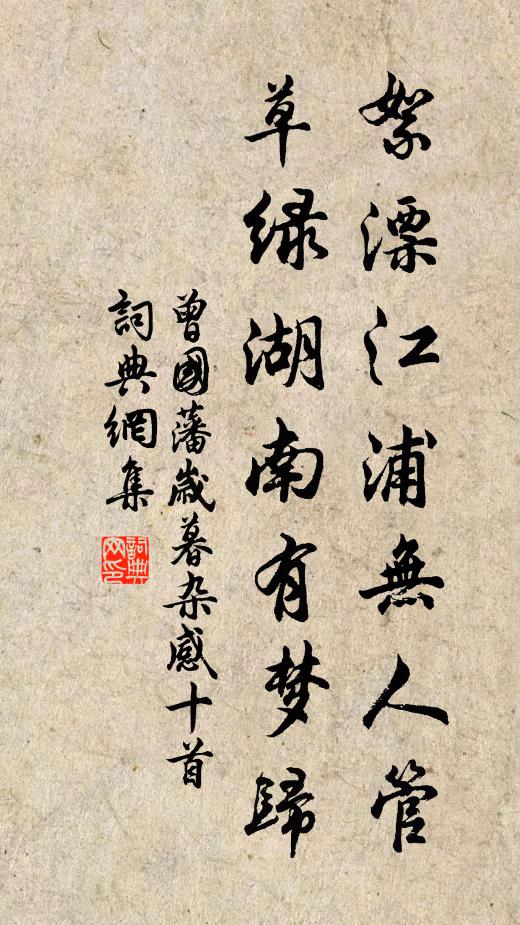 絮漂江浦無人管
草绿湖南有梦歸
曾國藩歲暮杂感十首
詞典網集
詞典网印